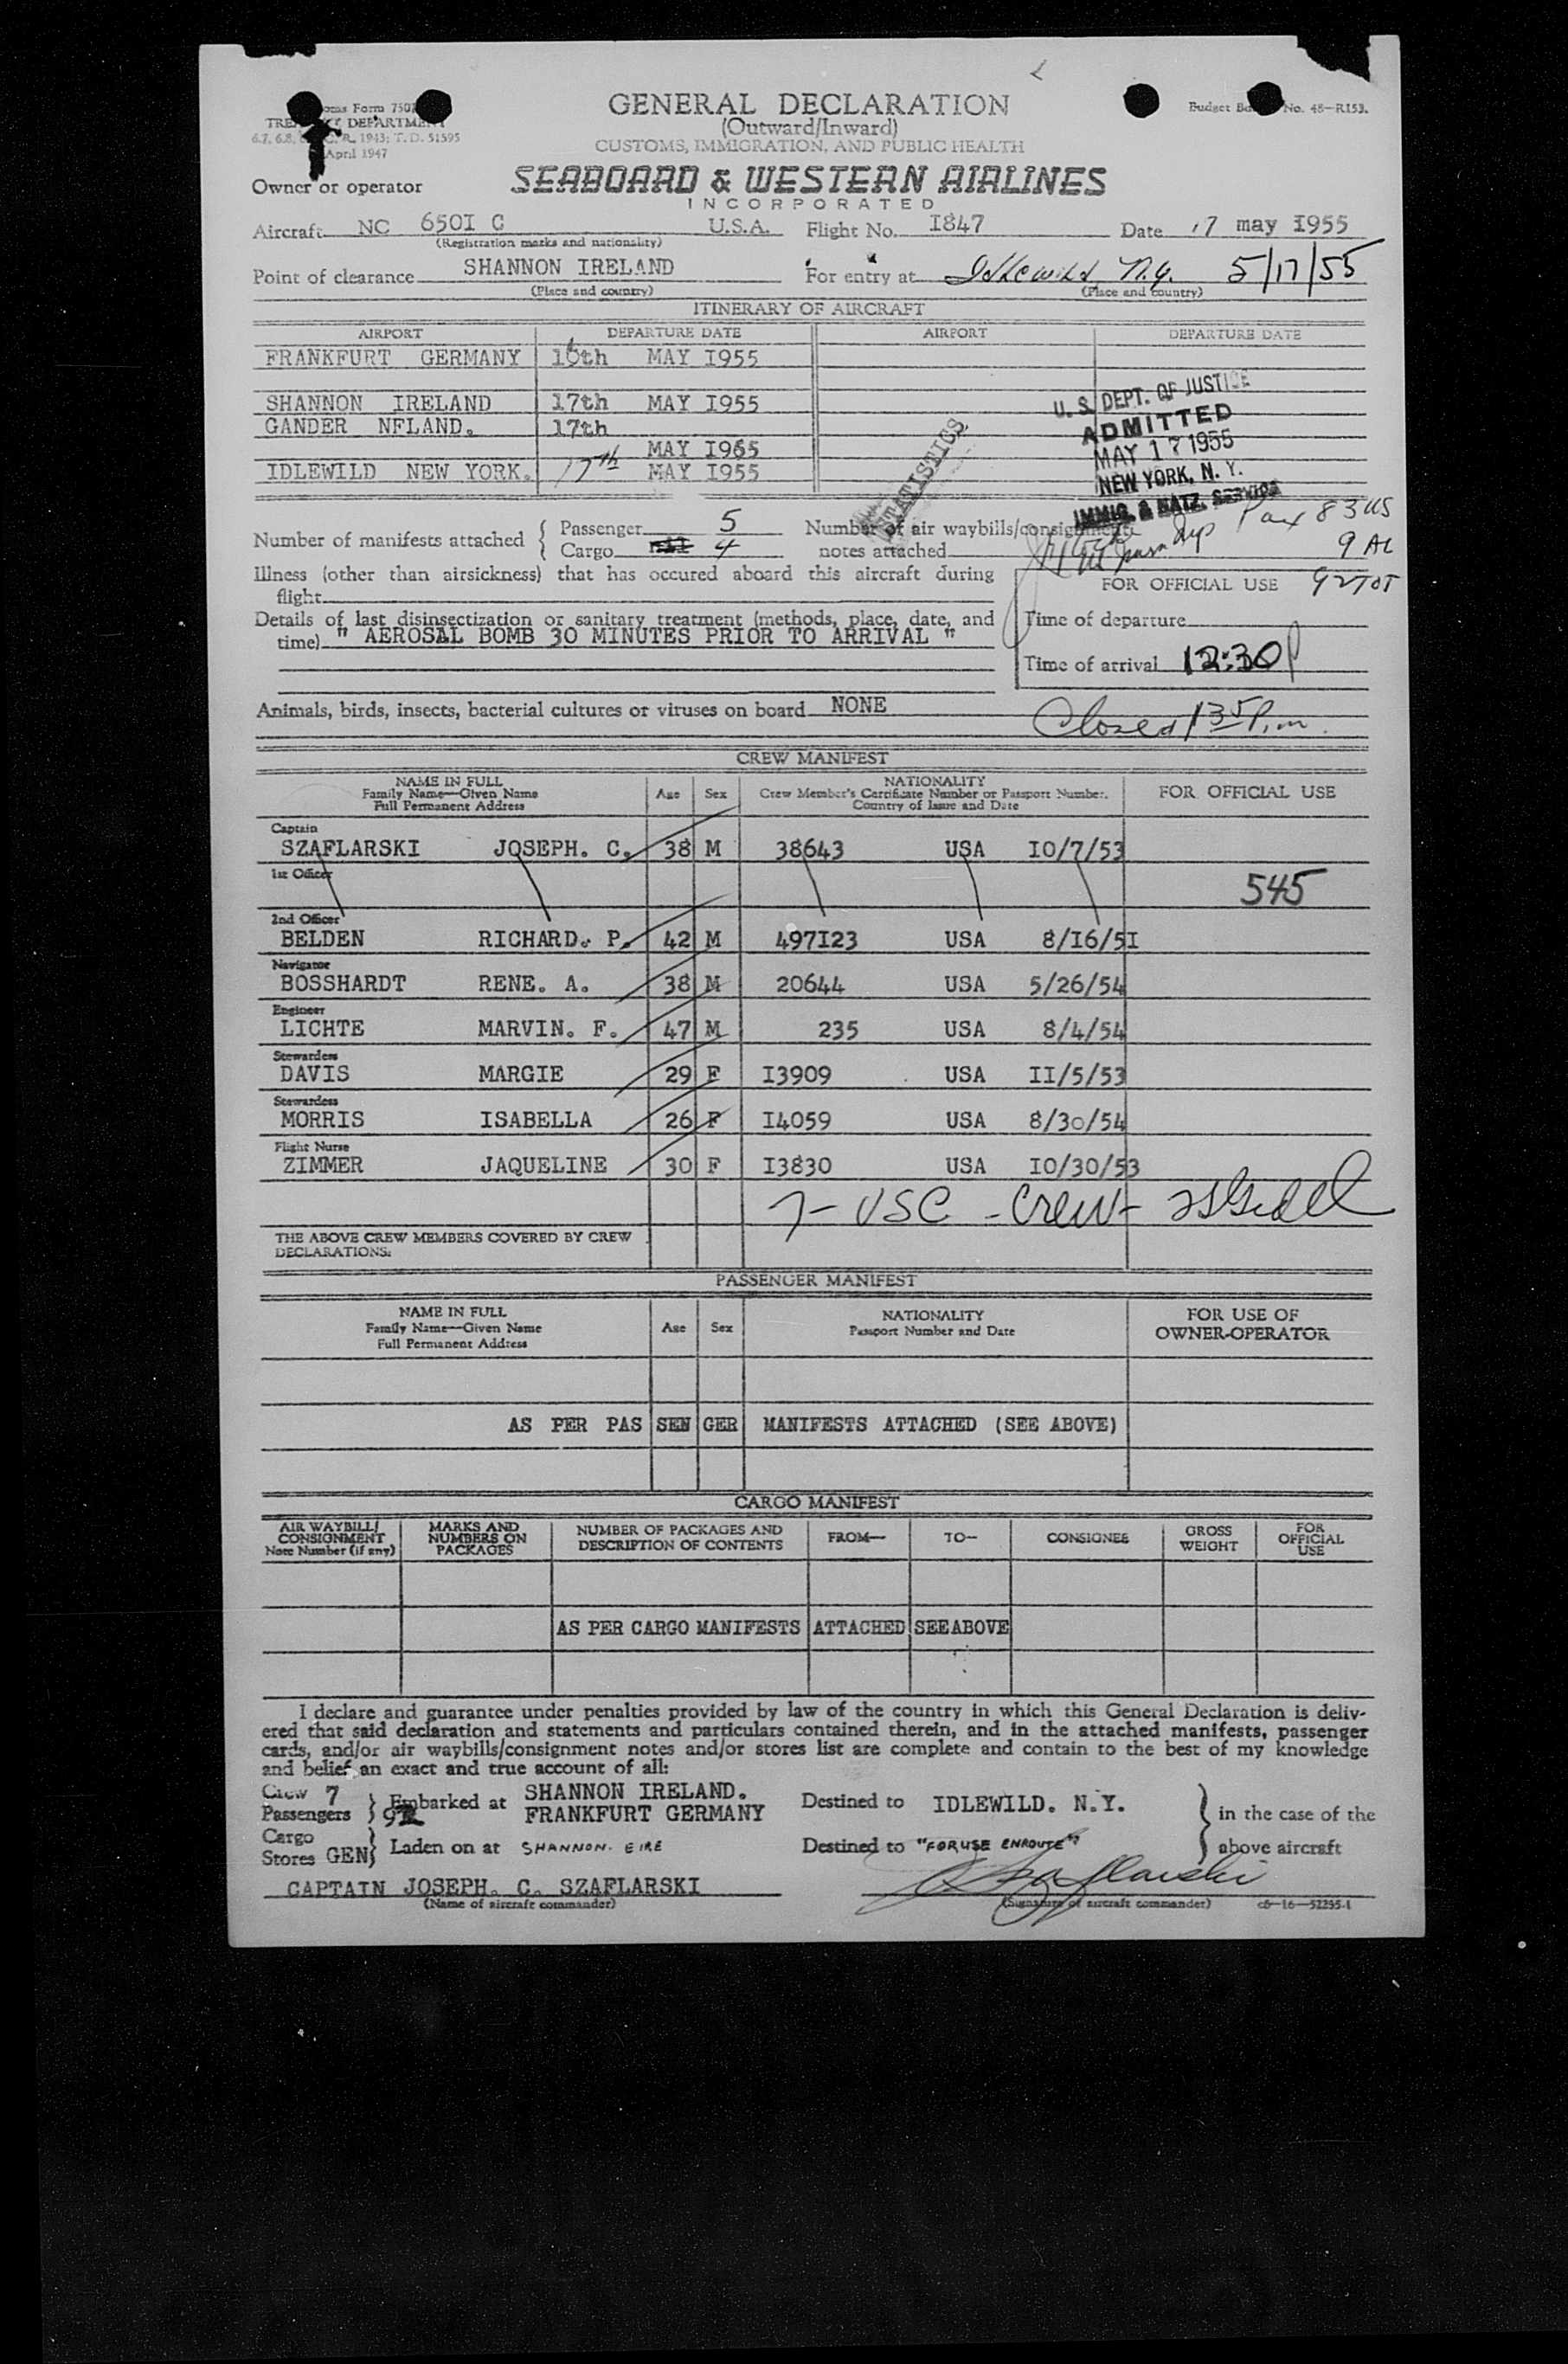 GENERAL DECLARATION
(Outward/Inward)
CUSTOMS, IMMIGRATION, AND PUBLIC HEALTH
Form 750
DEPARTMENT
1943; T. D. 51595
April 1947
Budget No. 48—R153.
Owner or operator SEABOARD & WESTERN AIRLINES
INCORPORATED
Aircraft NC 650I C U.S.A. Flight No. I847 Date 17 may I955
(Registration marks and nationality)
Point of clearance SHANNON IRELAND For entry at Idlewild N.Y. 5/17/55
(Place and country) (Place and country)
ITINERARY OF AIRCRAFT
AIRPORT DEPARTURE DATE AIRPORT DEPARTURE DATE
FRANKFURT GERMANY 16th MAY I955
SHANNON IRELAND 17th MAY I955
GANDER NFLAND. 17th
MAY I965
IDLEWILD NEW YORK. 17th MAY I955
U. S. DEPT. OF JUSTICE
ADMITTED
MAY 17 1955
NEW YORK, N. Y.
IMMIG. & NATZ. SERVICE
STATISTICS
Number of manifests attached { Passenger 5
Cargo 4
Number of air waybills/consignment
notes attached
Pax 83 US
9 AL
92 TOT
Illness (other than airsickness) that has occured aboard this aircraft during
flight
FOR OFFICIAL USE
Details of last disinsectization or sanitary treatment (methods, place, date, and
time) " AEROSAL BOMB 30 MINUTES PRIOR TO ARRIVAL "
Time of departure
Time of arrival 12:30p
Animals, birds, insects, bacterial cultures or viruses on board NONE
Closed 135 P.m.
CREW MANIFEST
NAME IN FULL
Family Name—Given Name
Full Permanent Address
Age Sex
NATIONALITY
Crew Member's Certificate Number or Passport Number,
Country of Issue and Date
FOR OFFICIAL USE
Captain
SZAFLARSKI JOSEPH. C. 38 M 38643 USA IO/7/53
1st Officer
545
2nd Officer
BELDEN RICHARD. P. 42 M 497I23 USA 8/I6/5I
Navigator
BOSSHARDT RENE. A. 38 M 20644 USA 5/26/54
Engineer
LICHTE MARVIN. F. 47 M 235 USA 8/4/54
Stewardess
DAVIS MARGIE 29 F I3909 USA II/5/53
Stewardess
MORRIS ISABELLA 26 F I4059 USA 8/30/54
Flight Nurse
ZIMMER JAQUELINE 30 F I3830 USA IO/30/53
7- USC - Crew-
THE ABOVE CREW MEMBERS COVERED BY CREW
DECLARATIONS:
PASSENGER MANIFEST
NAME IN FULL
Family Name—Given Name
Full Permanent Address
Age Sex
NATIONALITY
Passport Number and Date
FOR USE OF
OWNER-OPERATOR
AS PER PAS SEN GER MANIFESTS ATTACHED (SEE ABOVE)
CARGO MANIFEST
AIR WAYBILL/
CONSIGNMENT
Note Number (if any)
MARKS AND
NUMBERS ON
PACKAGES
NUMBER OF PACKAGES AND
DESCRIPTION OF CONTENTS
FROM— TO— CONSIGNEE
GROSS
WEIGHT
FOR
OFFICIAL
USE
AS PER CARGO MANIFESTS ATTACHED SEE ABOVE
I declare and guarantee under penalties provided by law of the country in which this General Declaration is deliv-
ered that said declaration and statements and particulars contained therein, and in the attached manifests, passenger
cards, and/or air waybills/consignment notes and/or stores list are complete and contain to the best of my knowledge
and belief an exact and true account of all:
Crew 7
Passengers 92 } Embarked at SHANNON IRELAND.
FRANKFURT GERMANY
Destined to IDLEWILD. N.Y. } in the case of the
Cargo
Stores GEN } Laden on at SHANNON. EIRE Destined to "FOR USE ENROUTE" above aircraft
CAPTAIN JOSEPH. C. SZAFLARSKI
(Name of aircraft commander)
(Signature of aircraft commander) c6—16—52255-1